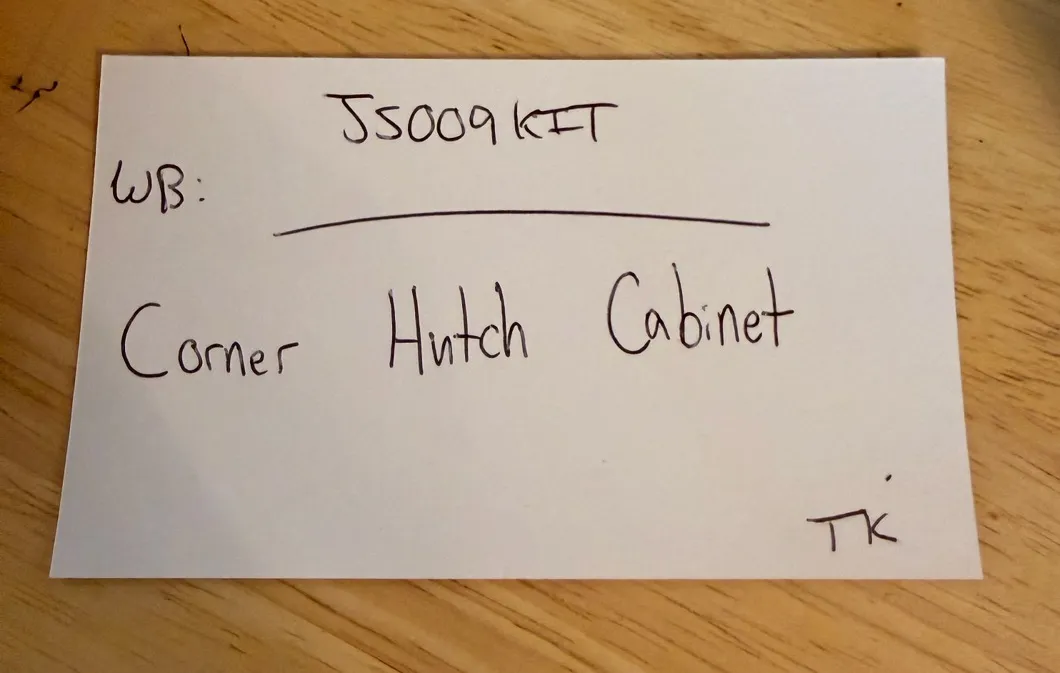 JS009KIT
WB:
Corner Hutch Cabinet
TK